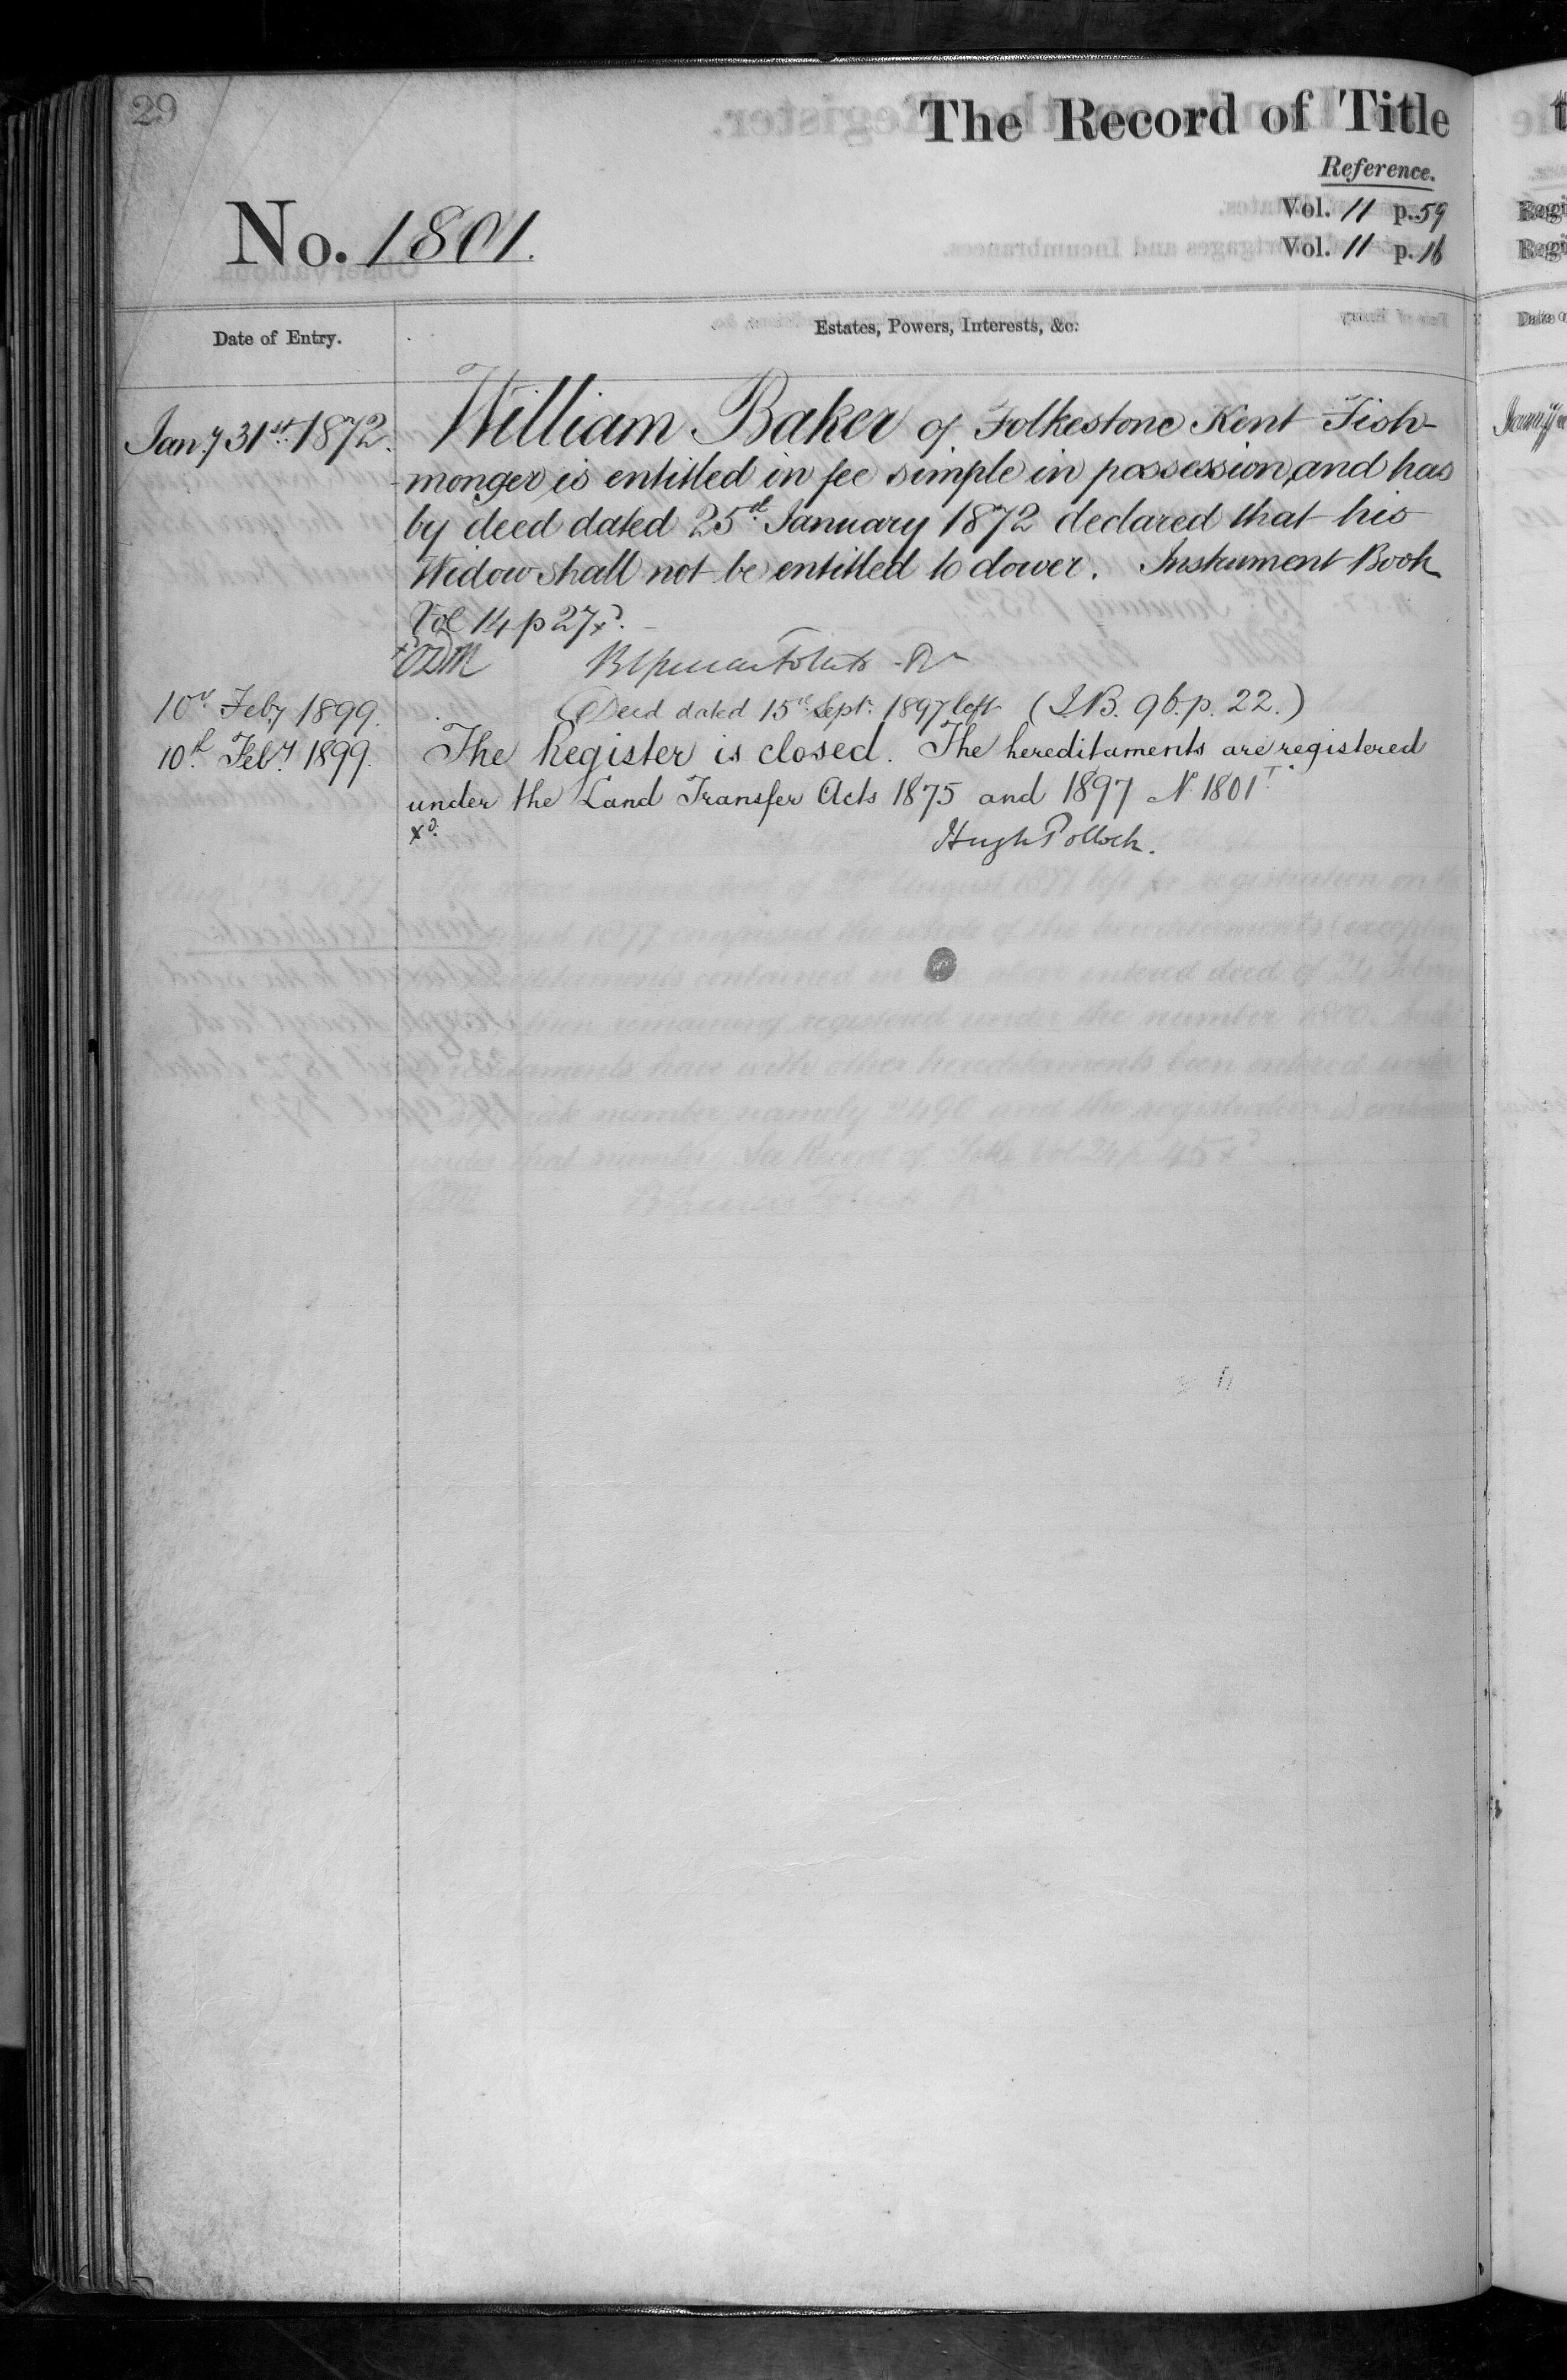 29
The Record of Title
Reference.
Vol. 11 p. 59
Vol. 11 p. 16
No. 1801.
Date of Entry.
Estates, Powers, Interests, &c.
Jany 31st 1872.
William Baker of Folkestone Kent Fish-
monger is entitled in fee simple in possession and has
by deed dated 25th January 1872 declared that his
Widow shall not be entitled to dower. Instrument Book
Vol 14 p 27 xd.
10th Feby 1899.
Deed dated 15th Sept: 1897 left (I.B. 96. p. 22.)
10th Feby 1899.
The Register is closed. The hereditaments are registered
under the Land Transfer Acts 1875 and 1897 No 1801T.
xd.
Hugh Pollock.